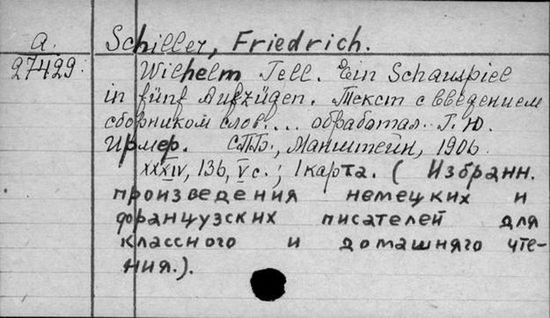 a. Schiller, Friedrich.
27429. Wilhelm Tell. Ein Schauspiel
in fünf Aufzügen. Текст с введением
сборником слов... обработал Г. Ю.
Ирмер. С.П.Б., Манштейн, 1906
XXXIV, 136, V с.; 1 карта. (Избранн.
произведения немецких и
французских писателей для
классного и домашняго чте-
ния.).